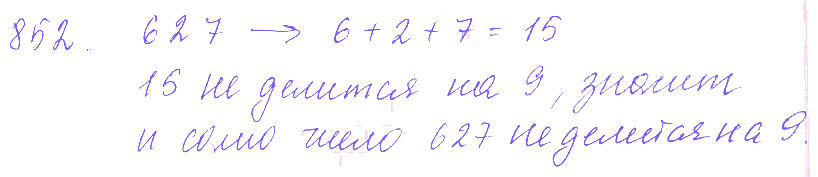 852. 627 → 6+2+7=15
15 не делится на 9, значит
и само число 627 не делится на 9.